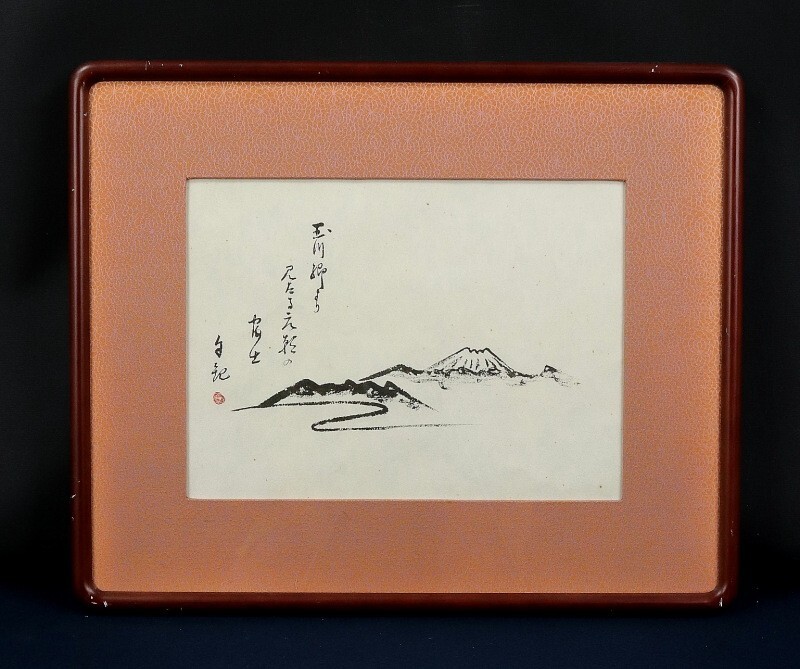 玉川郷より
見たる元朝の
富士